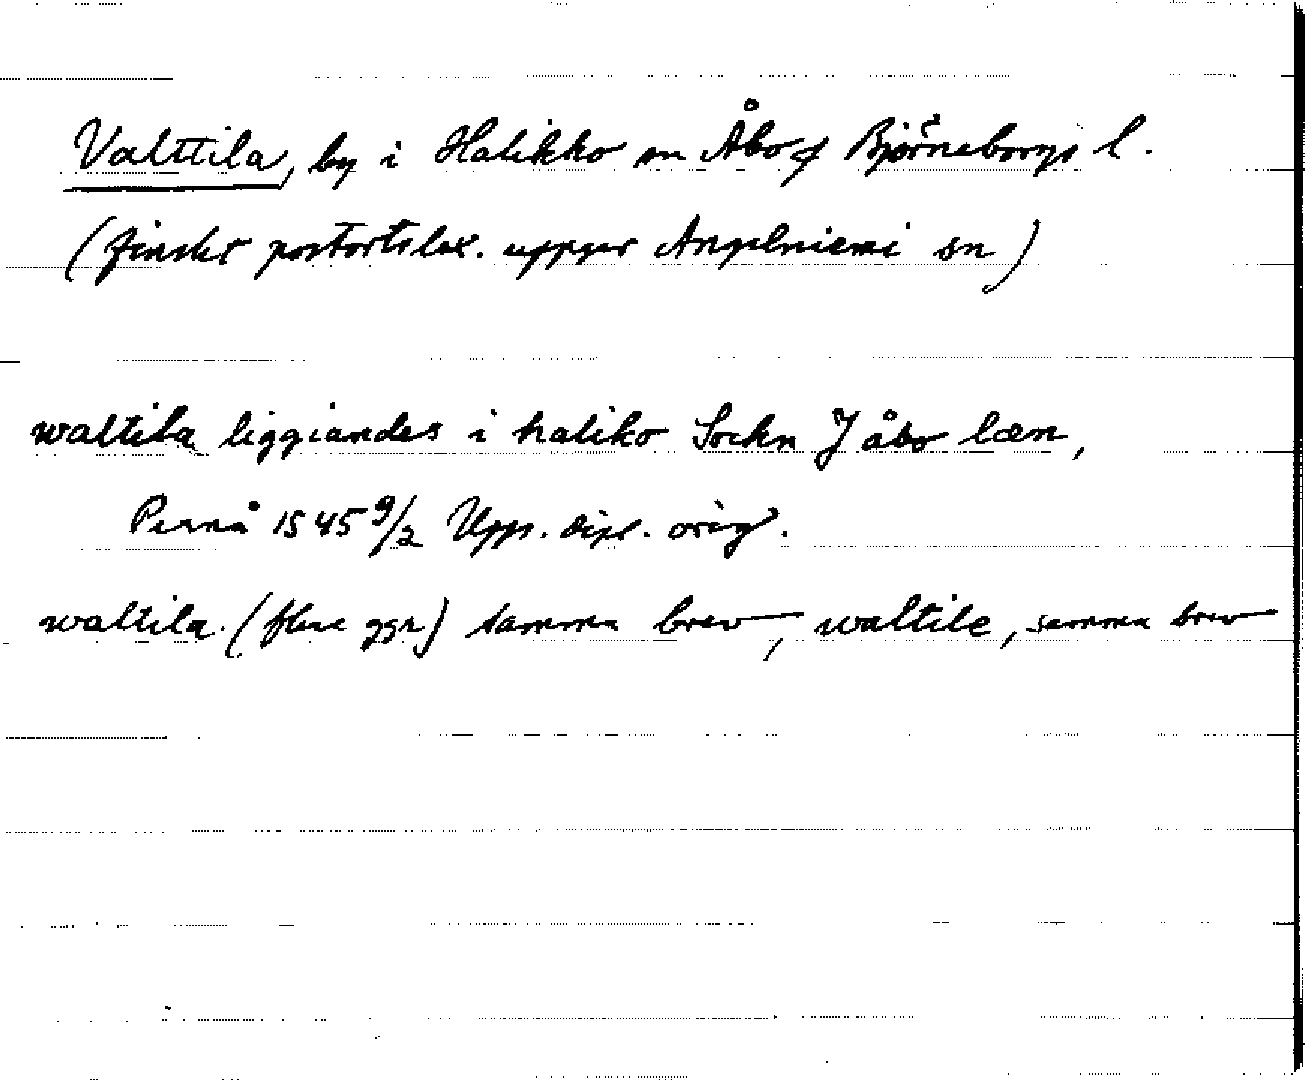 Valttila, by i Halikko sn Åbo o Björneborgs l.
(finskt postortslex. uppger Angelniemi sn)
waltila liggiandes i haliko Sockn J åbo læn,
Pernå 1545 9/2 Upps. dipl. orig.
waltila (flere ggr) samma brev, waltile, samma brev